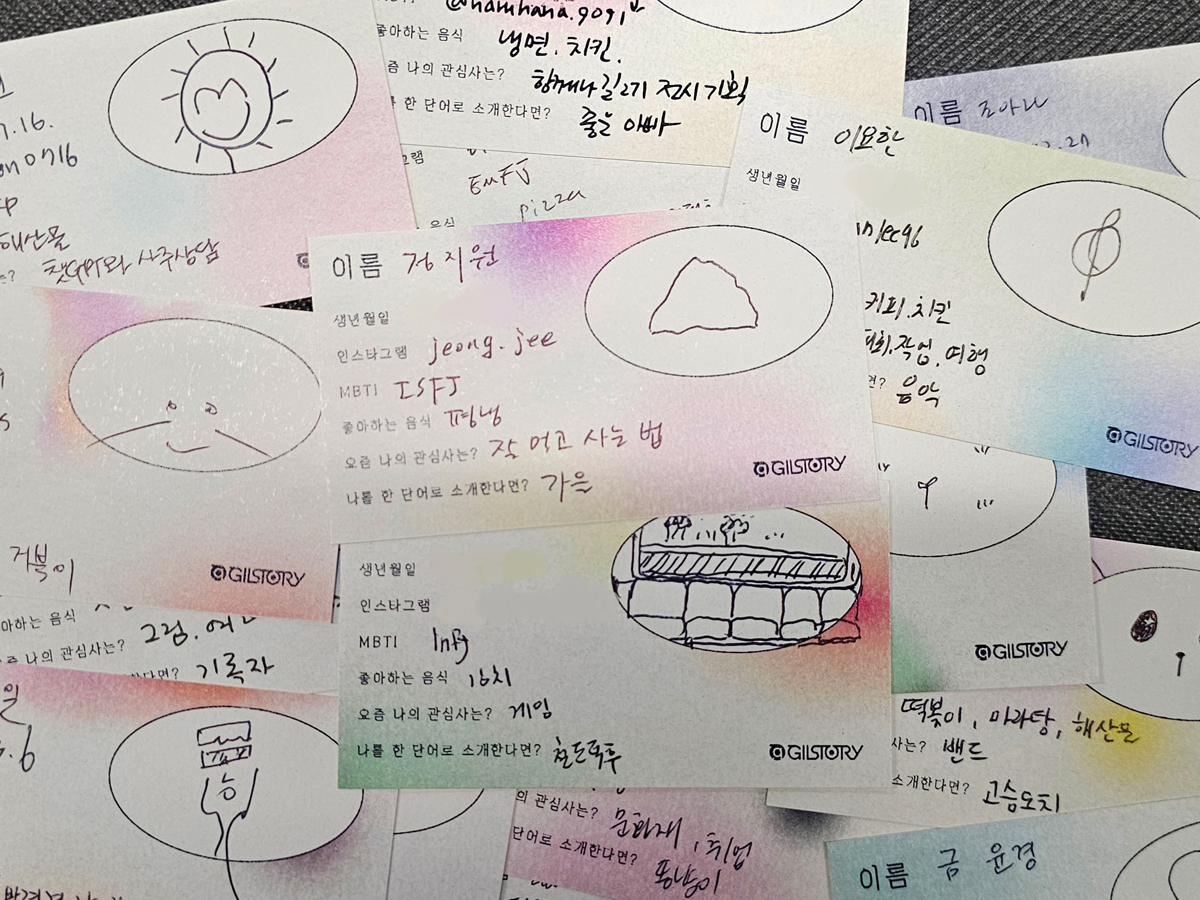 7.16.
0716
해산물
챗GPT와 사주상담
@hamhana.9091
좋아하는 음식 냉면. 치킨.
요즘 나의 관심사는? 함께나길2기 전시기획
나를 한 단어로 소개한다면? 좋은 아빠
EnFJ
pizza
음식
이름 조아나
이름 이요한
생년월일
커피. 치킨
작업. 여행
음악
GILSTORY
이름 정지원
생년월일
인스타그램 jeong.jee
MBTI ISFJ
좋아하는 음식 평냉
요즘 나의 관심사는? 잘 먹고 사는 법
나를 한 단어로 소개한다면? 가을
GILSTORY
거북이
GILSTORY
좋아하는 음식
요즘 나의 관심사는? 그림.
기록자
생년월일
인스타그램
MBTI Infj
좋아하는 음식 김치
요즘 나의 관심사는? 게임
나를 한 단어로 소개한다면? 철도덕후
GILSTORY
GILSTORY
떡볶이, 마라탕, 해산물
밴드
소개한다면? 고슴도치
의 관심사는? 문화재, 취업
단어로 소개한다면?
이름 금윤경